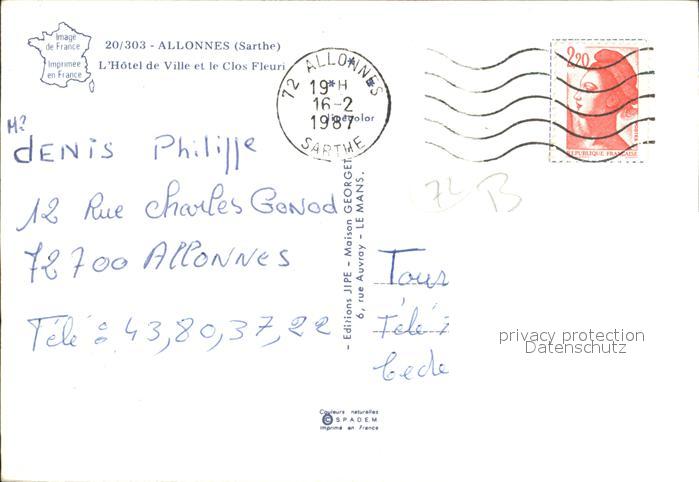 Image
de France
Imprimée
en France
20/303 - ALLONNES (Sarthe)
L'Hôtel de Ville et le Clos Fleuri
72 ALLONNES
19 H
16-2
1987
SARTHE
color
2,20
REPUBLIQUE FRANCAISE
Mr
dENis Philippe
12 Rue Charles GoNod
72700 AllONNES
Télé : 43,80,37,22
- Editions JIPE - Maison GEORGET
6, rue Auvray - LE MANS.
72 B
Tour
Télé 7
Cede
privacy protection
Datenschutz
Couleurs naturelles
© SPADEM
Imprimé en France